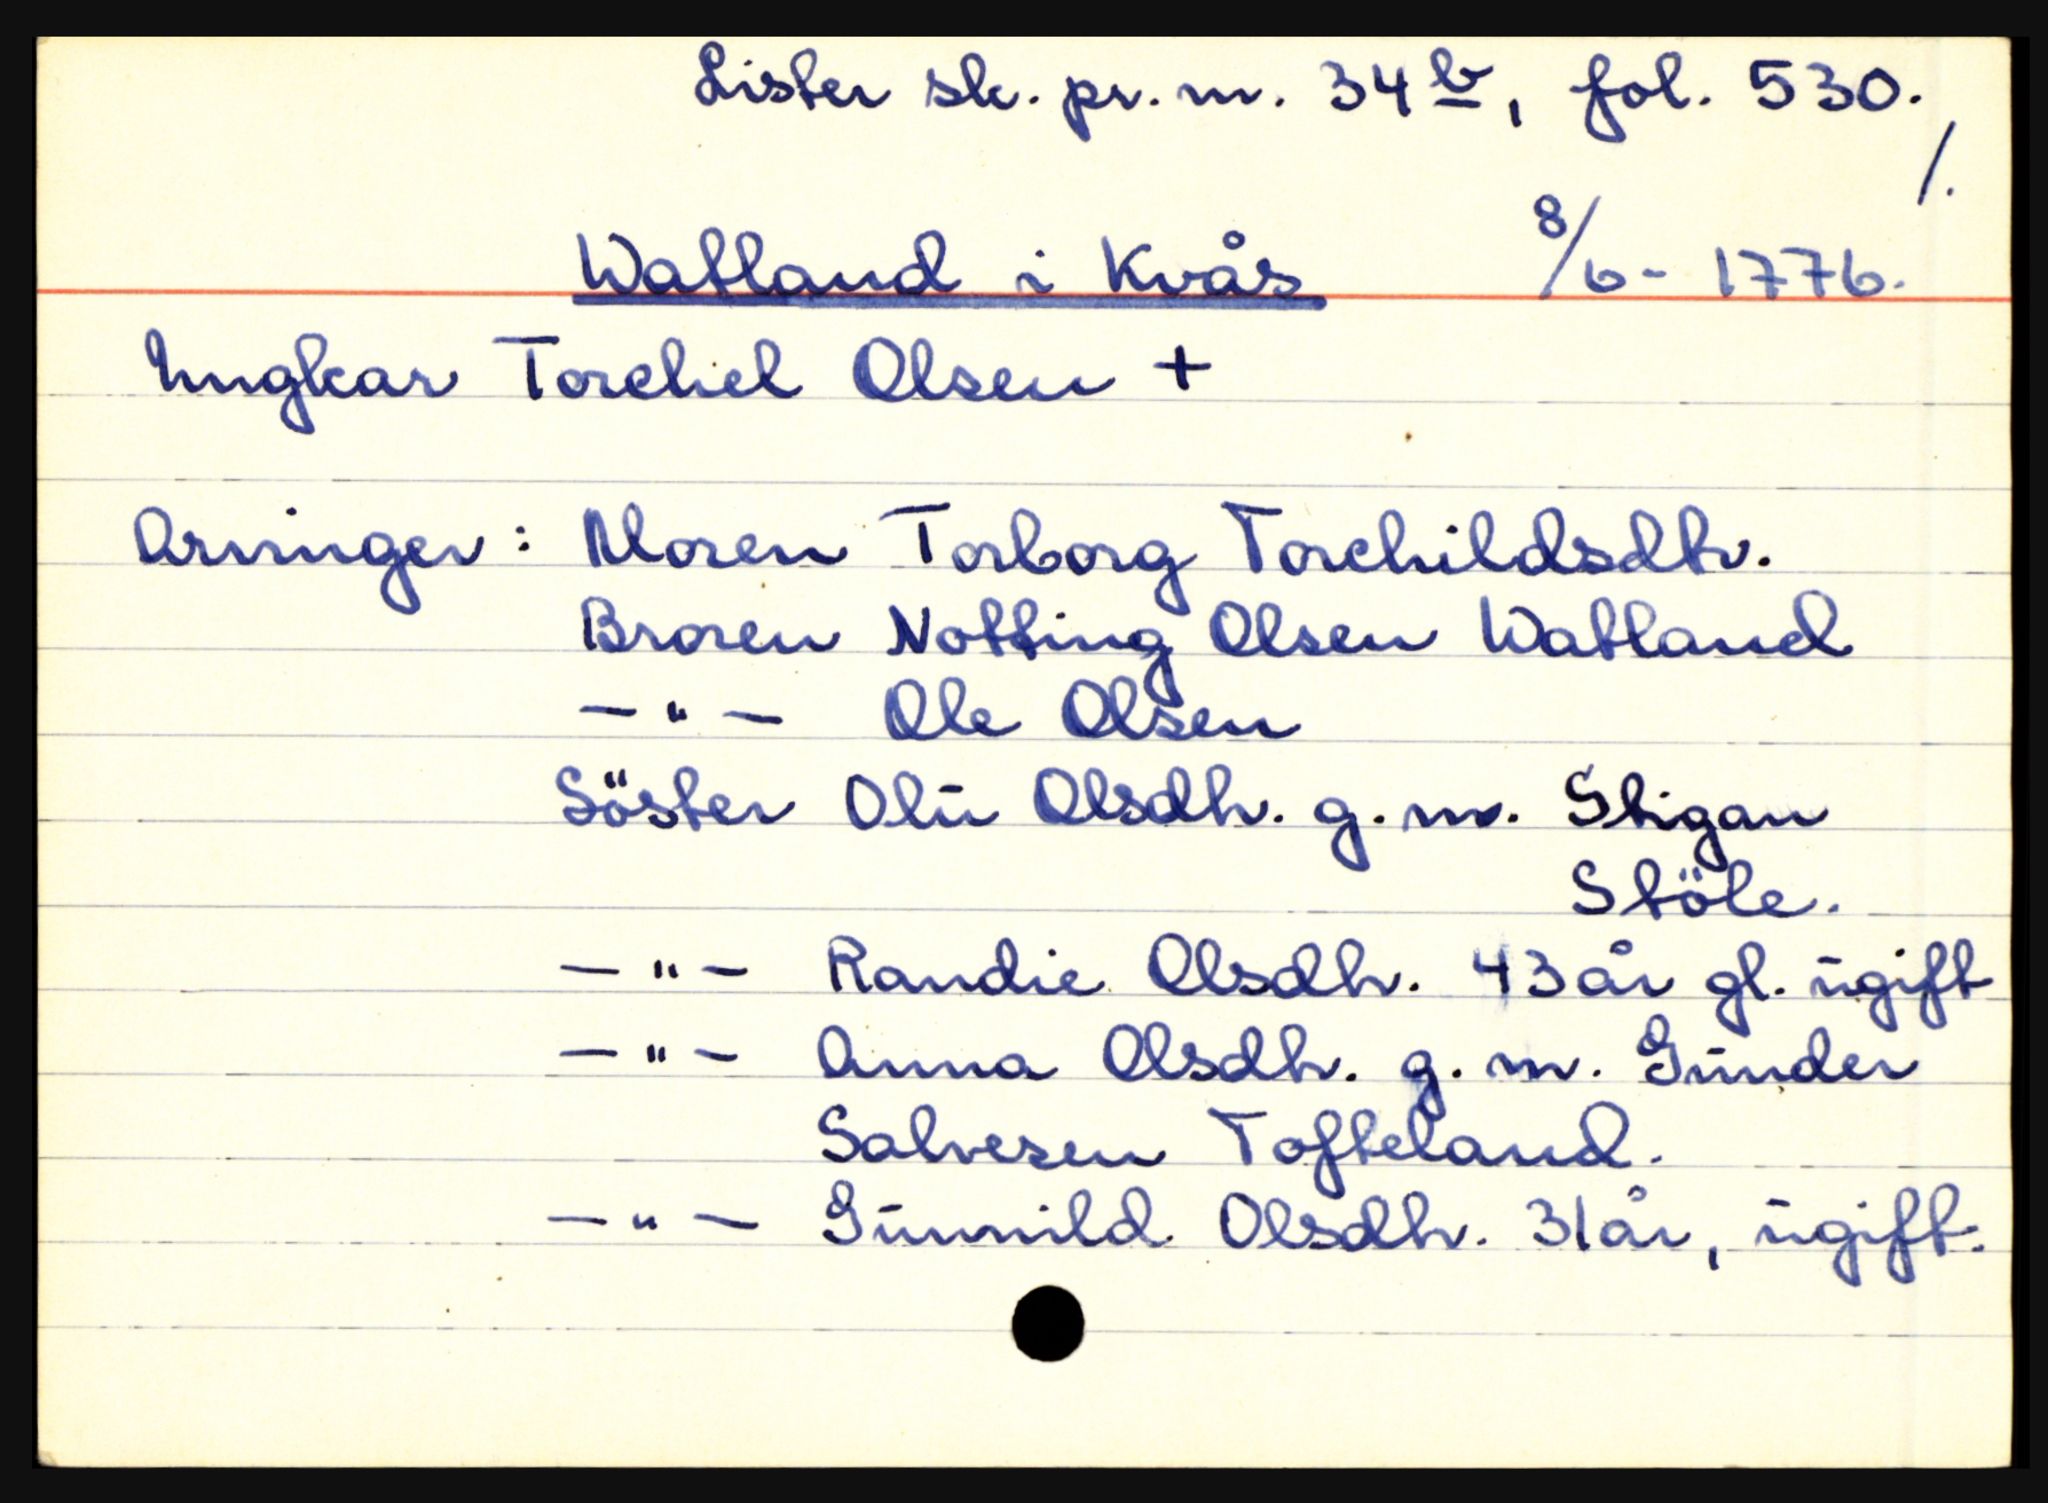 Lister sk. pr. m. 34 b, fol. 530.
/.
Watland i Kvås 8/6- 1776.
Ungkar Torchel Olsen +
Arvinger: Moren Torborg Torchildsdtr.
Broren Notting Olsen Watland
— " — Ole Olsen
Söster Olu Olsdtr. g. m. Stigan
Stöle.
— " — Randie Olsdtr. 43 år gl. ugift
— " — Anna Olsdtr. g. m. Gunder
Salvesen Tofteland.
— " — Gunnild Olsdtr. 31 år, ugift.